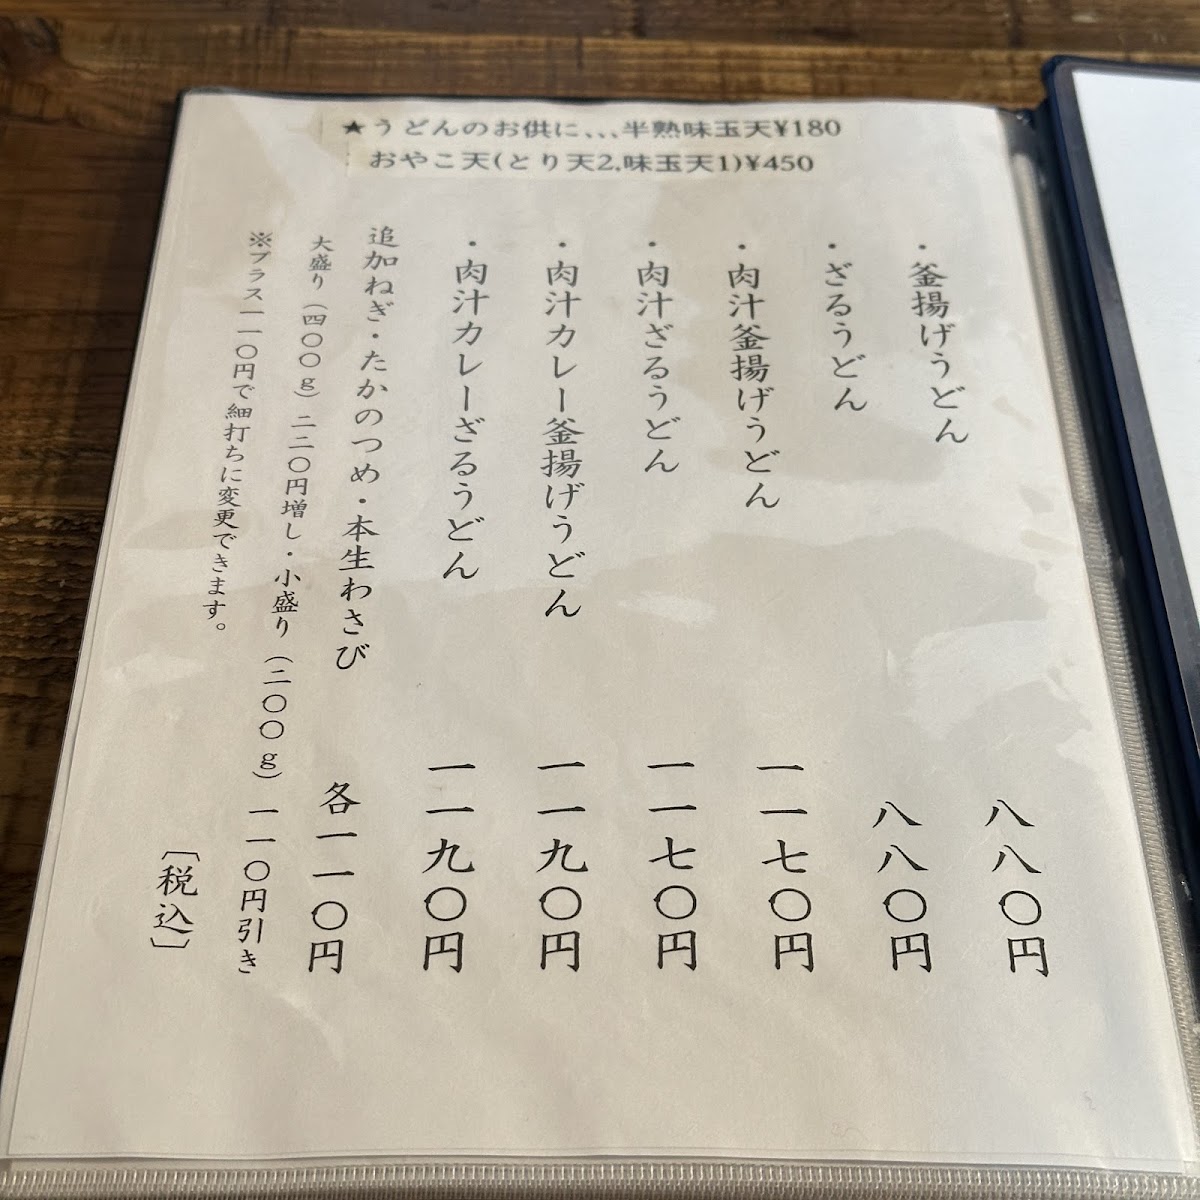 ★うどんのお供に、、、半熟味玉天¥180
おやこ天(とり天2,味玉天1)¥450
・釜揚げうどん 八八〇円
・ざるうどん 八八〇円
・肉汁釜揚げうどん 一一七〇円
・肉汁ざるうどん 一一七〇円
・肉汁カレー釜揚げうどん 一一九〇円
・肉汁カレーざるうどん 一一九〇円
追加ねぎ・たかのつめ・本生わさび 各一一〇円
大盛り(四〇〇g)二二〇円増し・小盛り(二〇〇g)一一〇円引き
※プラス一一〇円で細打ちに変更できます。
〔税込〕